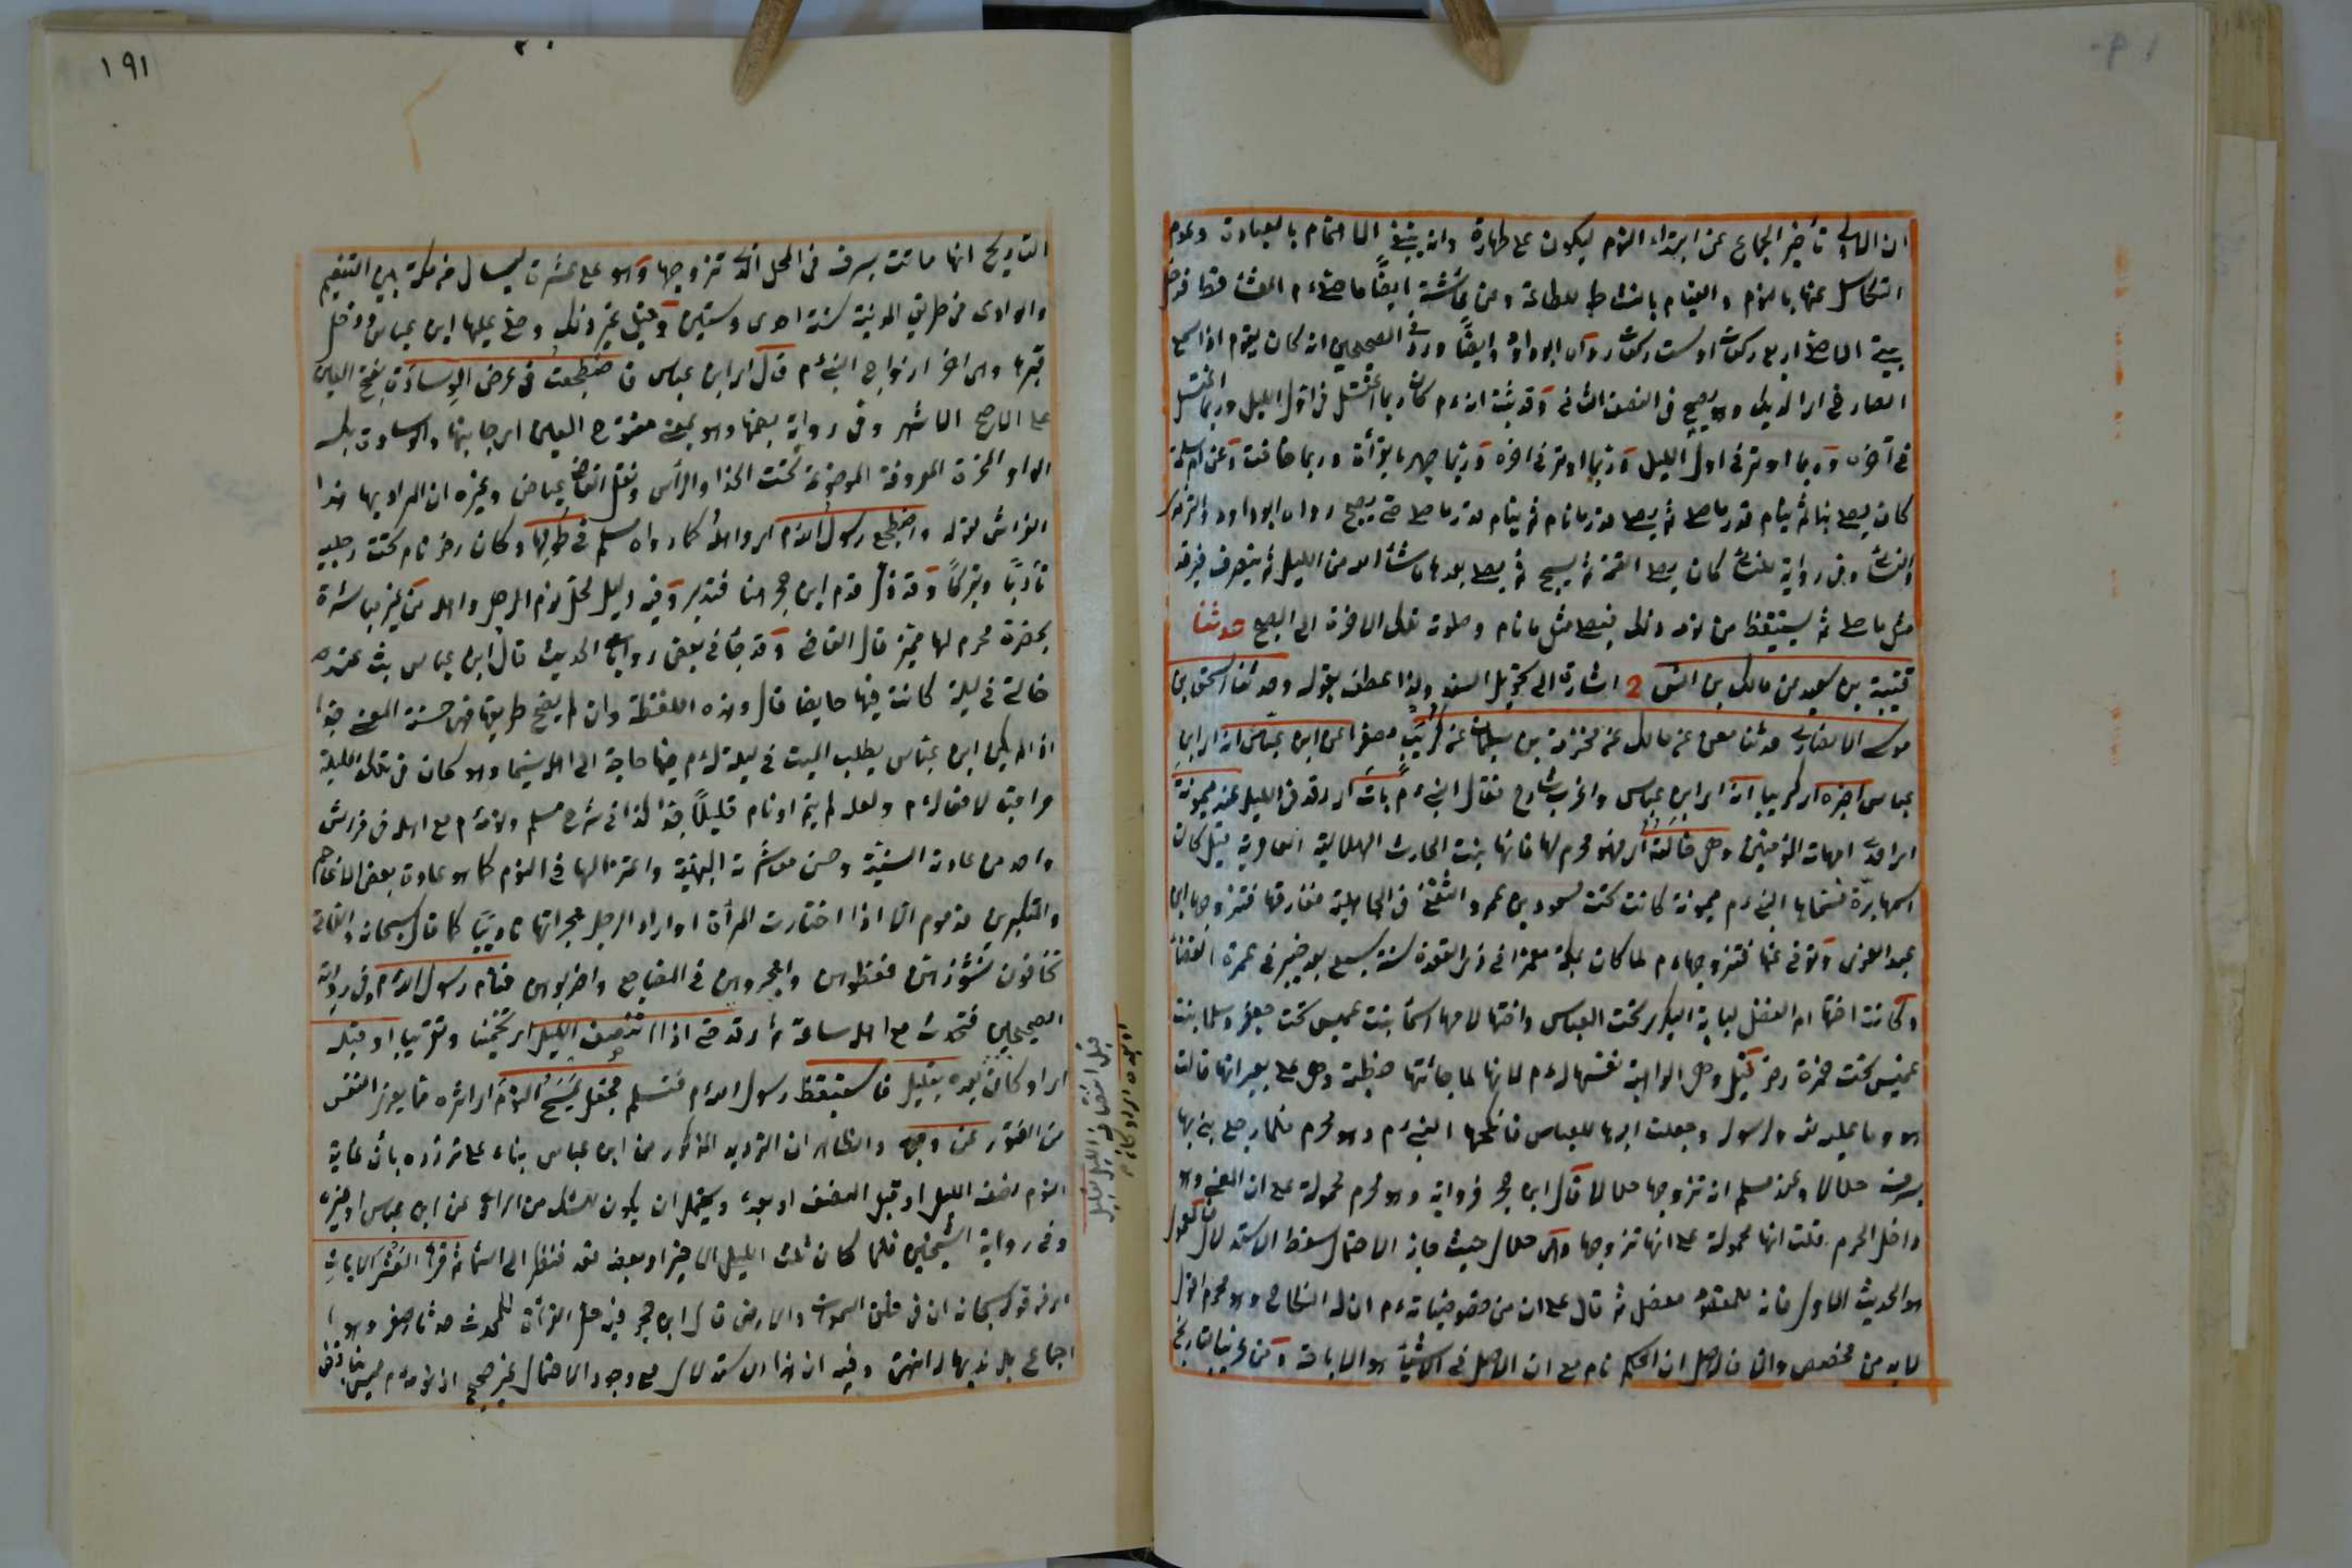 ان الاولى تأخير الجماع عن ابتداء النوم ليكون على طهارة وانه ينبغي الاهتمام بالعبادة وعدم
التكاسل عنها بالنوم والقيام بالنشاط للطاعة وعن عائشة ايضًا ما صلى م العشاء قط فدخل
بيته الا صلى اربع ركعات او ست ركعات رواه ابو داود وايضًا ورد في الصحيحين انه كان يقوم اذا سمع
الصارخ اى الديك وهو يصيح في النصف الثانى وقد ثبت انه م كان ربما اغتسل في اول الليل وربما اغتسل
في آخره وربما اوتر في اول الليل وربما اوتر في آخره وربما جهر بالقرأة وربما خافت وعن ام سلمة
كان يصلى بنا ثم ينام قدر ما صلى ثم يصلى قدر ما نام ثم ينام قدر ما صلى حتى يصبح رواه ابو داود والترمذى
والنسائى وفى رواية للنسائى كان يصلى العتمة ثم يسبح ثم يصلى بعدها ما شاء الله من الليل ثم ينصرف فيرقد
مثل ما صلى ثم يستيقظ من نومه ذلك فيصلى مثل ما نام وصلوته تلك الآخرة الى الصبح حدثنا
قتيبة بن سعيد عن مالك بن انس 2 اشارة الى تحويل السند ولذا عطف بقوله وحدثنا اسحق بن
موسى الانصارى حدثنا معن عن مالك عن مخرمة بن سليمان عن كريب مصغرا عن ابن عباس انه اى ابن
عباس اخبره اى كريبا انه اى ابن عباس واغرب شارح فقال النبى م بات اى رقد في الليل عند ميمونة
احدى امهات المؤمنين وهى خالته اى فهو محرم لها فانها بنت الحارث الهلالية العامرية قيل كان
اسمها برة فسماها النبى م ميمونة كانت تحت مسعود بن عمرو الثقفى في الجاهلية ففارقها فتزوجها ابو
عبد العزى وتوفى عنها فتزوجها م لما كان بمكة معتمرا في ذى القعدة سنة سبع بعد خيبر في عمرة القضاء
وكانت اختها ام الفضل لبابة الكبرى تحت العباس واختها لامها اسماء بنت عميس تحت جعفر وسلمى بنت
عميس تحت حمزة رضى قيل وهى الواهبة نفسها له م لانها لما جاءتها خطبته وهى على بعيرها قالت
هو وما عليه لله ولرسوله وجعلت امرها للعباس فانكحها النبى م وهو محرم فلما رجع بنى بها
بسرف حلالا وعند مسلم انه تزوجها حلالا قال ابن حجر فرواية وهو محرم محمولة على ان المعنى وهو
داخل الحرم قلت انها محمولة على انها تزوجها وهى حلال حيث جاز الاحتمال سقط الاستدلال
هو الحديث الاول فانه ثم قال على ان من خصوصياته م ان له النكاح وهو محرم اقول
لا بد من مخصص والا فالاصل ان الحكم عام مع ان الاصل في الاشياء هو الاباحة ومن غريب التاريخ
١٩١
التاريخ انها ماتت بسرف في المحل الذى تزوجها وهو على عشرة اميال من مكة بين التنعيم
والوادى في طريق المدينة سنة احدى وستين وقيل غير ذلك وصلى عليها ابن عباس ودخل
قبرها وهى آخر ازواج النبى م قال اى ابن عباس فاضطجعت في عرض الوسادة بفتح العين
على الاصح الاشهر وفى رواية بضمها وهو بمعنى مفتوح العين اى جانبها والوسادة بكسر
الواو المخدة المعروفة الموضوعة تحت الخد او الرأس ونقل القاضى عياض وغيره ان المراد بها هنا
الفراش لقوله واضطجع رسول الله م اى واهله كما رواه مسلم في طولها وكان رضى نام تحت رجليه
تأدبًا وتبركًا وفيه دليل لحل نوم الرجل واهله من غير مباشرة
بحضرة محرم لها مميز قال القاضى وقد جاء في بعض روايات الحديث قال ابن عباس بت عند
خالتى في ليلة كانت فيها حايضا قال وهذه اللفظة وان لم يصح طريقها فهى حسنة المعنى جدا
اذ لم يكن ابن عباس يطلب المبيت في ليلة له م فيها حاجة الى اهله سيما وهو كان في تلك الليلة
مراقبا لافعاله م ولعله لم ينم او نام قليلًا جدا كذا في شرح مسلم ونومه م مع اهله في فراش
واحد من عادته السنية وحسن معاشرته البهية واعتزالها في النوم كما هو عادة بعض الاعاجم
والمتكبرين مذموم الا اذا اختارت المرأة او اراد الرجل هجرانها تأديبًا كما قال سبحانه واللاتى
تخافون نشوزهن فعظوهن واهجروهن في المضاجع واضربوهن فنام رسول الله م وفى رواية
الصحيحين فتحدث مع اهله ساعة ثم رقد حتى اذا انتصف الليل اى تخمينا وتقريبا او قبله
اى او كان بعده بقليل فاستيقظ رسول الله م فجعل يمسح النوم اى اثره مما يعرض النفس
من الفتور عن وجهه والظاهر ان الترديد المذكور من ابن عباس بناء على تردده بان غاية
النوم نصف الليل او قبل النصف او بعده ويحتمل ان يكون للشك من الراوى عن ابن عباس او غيره
وفى رواية الشيخين فلما كان ثلث الليل الاخير او بعضه قعد فنظر الى السماء ثم قرأ العشر الآيات
اى من قوله سبحانه ان في خلق السموات والارض قال ابن حجر فيه حل القرأة للمحدث حدثا اصغر وهو
اجماع بل ندبها له انتهى وفيه ان هذا الاستدلال مع وجود الاحتمال غير صحيح اذ نومه م ليس